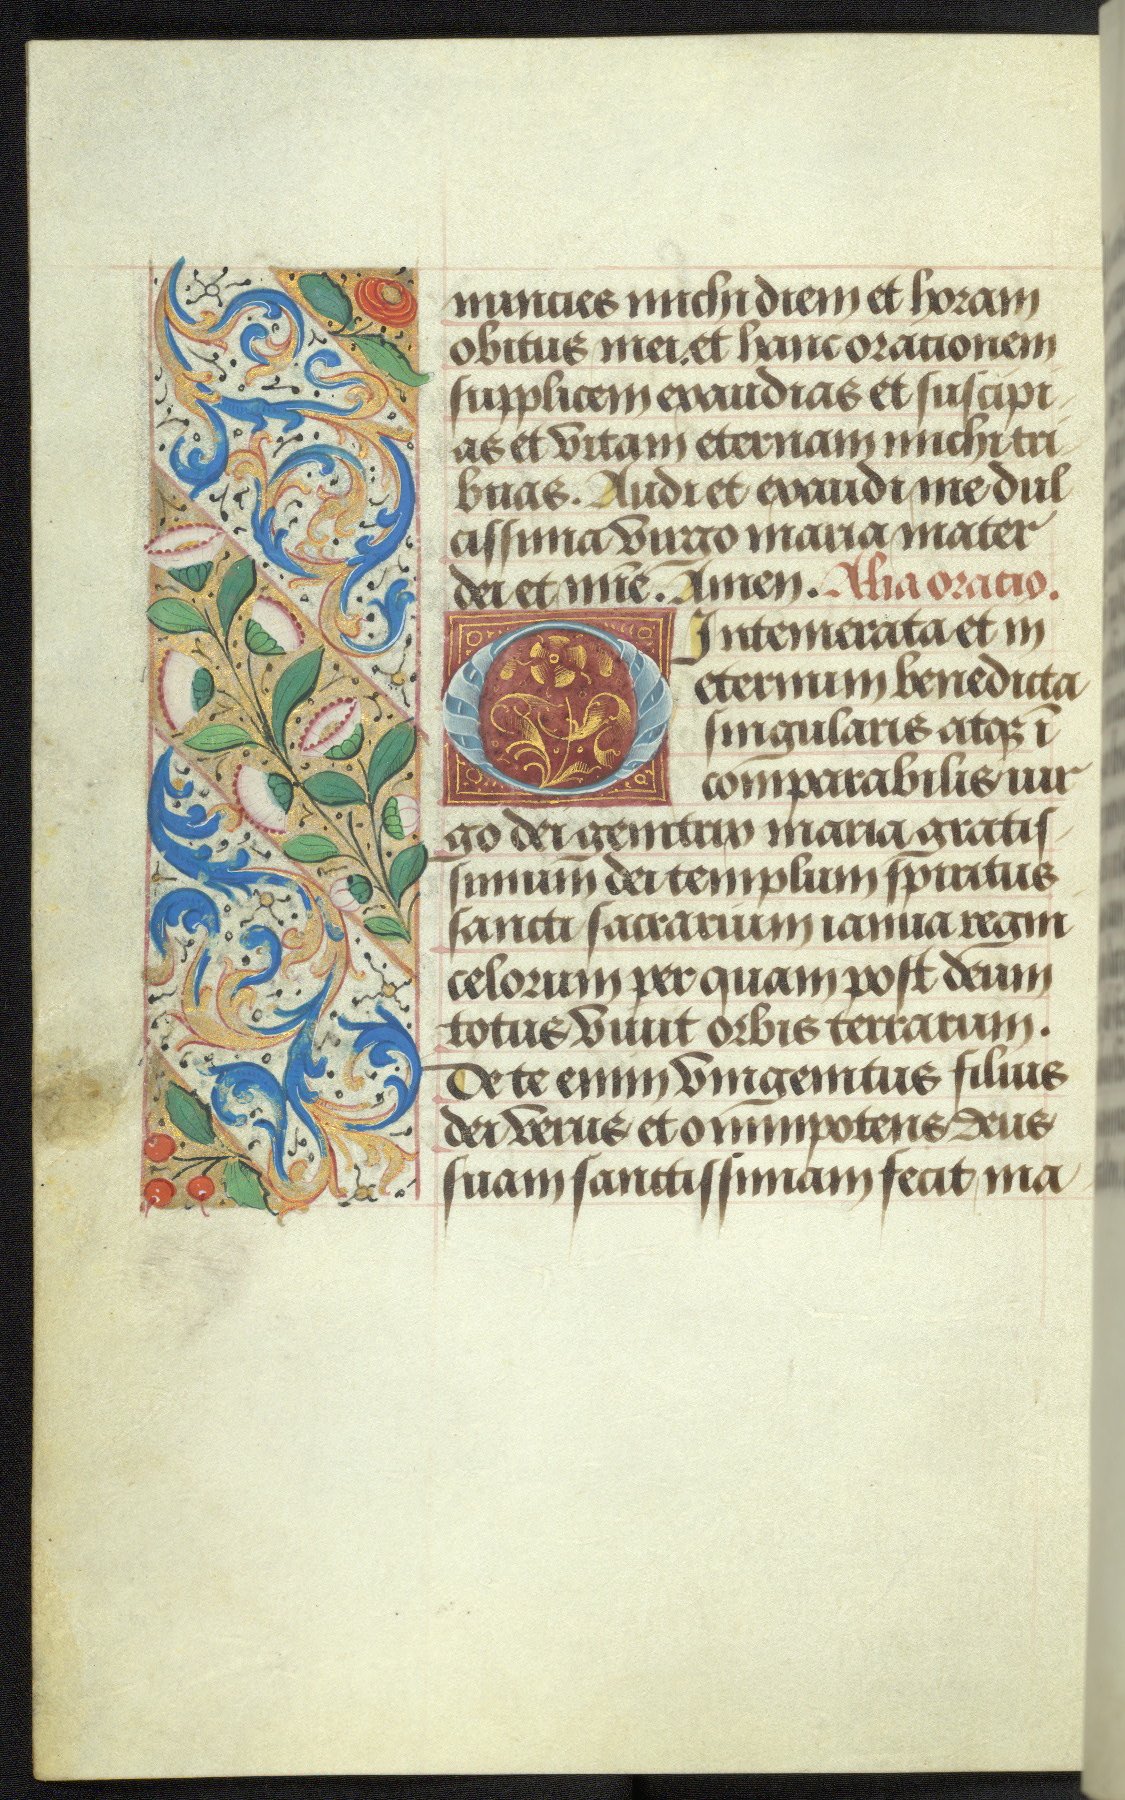 nuncies michi diem et horam
obitus mei. et hanc orationem
supplicem exaudias et suscipi-
as et vitam eternam michi tri-
buas. Audi et exaudi me dul
cissima virgo maria mater
dei et mie. Amen. Alia oratio.
O Intemerata et in
eternum benedicta
singularis atqꝫ ī
comparabilis uir
go dei genitrix maria gratis-
simum dei templum sp̄iritus
sancti sacrarium ianua regni
celorum per quam post deum
totus viuit orbis terrarum.
De te enim vnigenitus filius
dei verus et omnīpotens deus
suam sanctissimam fecit ma